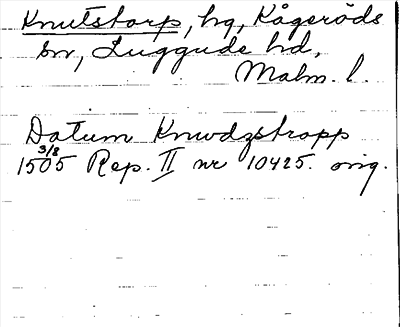 Knutstorp, hg, Kågeröds
sn, Luggude hd,
Malm. l.
Datum Knwdzstropp
1505 3/8 Rep. II nr 10425. orig.